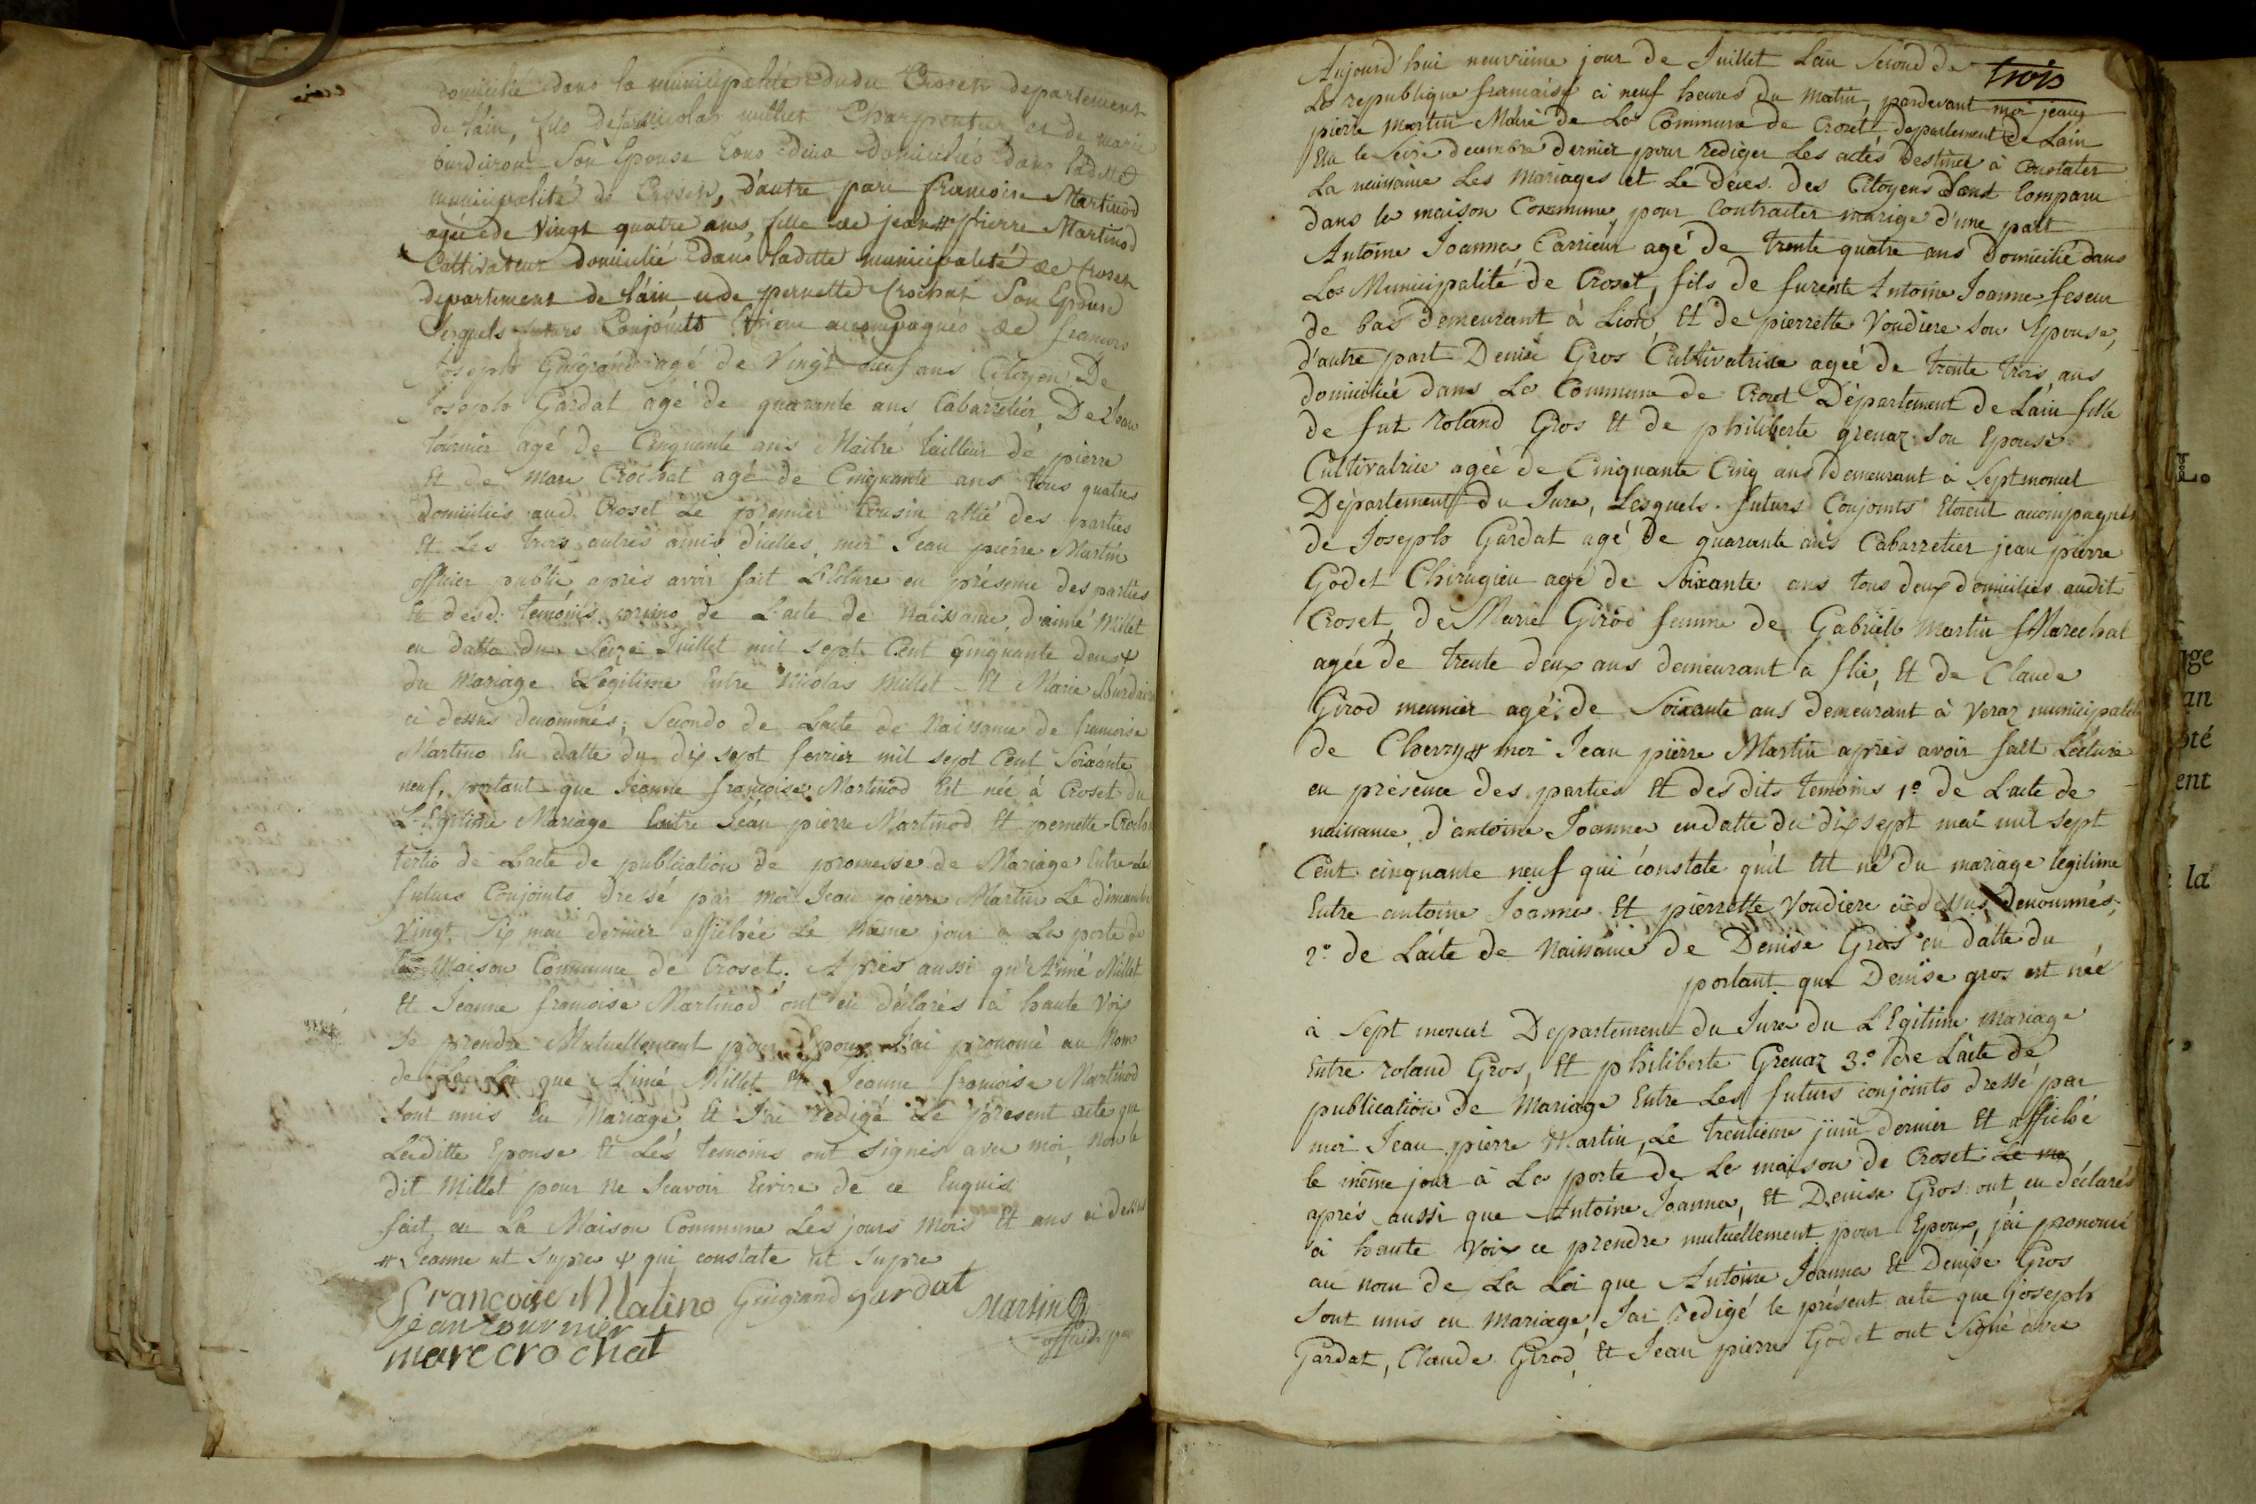 domicilié dans la municipalité dudit Croset departement
de l'ain, fils de feu nicolas millet Charpentier et de marie
bourdiron Son Epouse tous deux domiciliés dans ladite
municipalité de Croset, d'autre part francoise Martinod
agée de Vingt quatre ans, fille de jean # pierre Martinod
Cultivateur domicilié dans laditte municipalité de Croset
departement de l'ain et de pernette Crochat Son Epouse
Lesquels futurs Conjoints accompagnés de francois
Joseph Guigrand agé de Vingt neuf ans Citoyen De
Joseph Gardat agé de quarante ans Cabarretier, De Jean
tournier agé de Cinquante ans Maitre tailleur de pierre
Et de Marc Crochat agé de Cinquante ans tous quatres
domiciliés aud. Croset Le premier Cousin allié des parties
Et Les trois autres amis d'icelles, moi Jean pierre Martin
officier public après avoir fait Lecture en présence des parties
Et desd. temoins primo de L'acte de Naissance, d'aimé Millet
en datte du Seize Juillet mil sept Cent cinquante deux #
du Mariage Légitime Entre Nicolas Millet Et Marie Bourdiron
ci dessus denommés; Secondo de Lacte de Naissance de francoise
Martino En datte du dix sept fevrier mil sept Cent Soixante
neuf, portant que Jeanne francoise Martinod Est née à Croset du
L'Egitime Mariage Entre Jean pierre Martinod Et pernette Crochat
tertio de Lacte de publication de promesse de Mariage Entre les
futurs Conjoints dressé par moi Jean pierre Martin Le dimanche
Vingt Six mai dernier affichée Le même jour a La porte de
la Maison Commune de Croset. Après aussi qu'Aimé Millet
Et Jeanne francoise Martinod ont eu déclarés à haute Voix
Se prendre Mutuellement pour Epoux J'ai prononcé au Nom
de La Loi que Aimé Millet et Jeanne francoise Martinod
Sont unis En Mariage Et J'ai redigé Le present acte que
Laditte Epouse Et Les temoins ont Signés avec moi, Non le
dit Millet pour Ne Scavoir Ecrire de ce Enquis
fait en La Maison Commune Les jours mois Et ans ci dessus
# Jeanne ut Supra # qui constate ut Supra
Francoise Matino Guigrand gardat
jean tournier Martin
marc crochat officier pu
trois
Aujourd'hui neuvième jour de Juillet L'an Second de
La republique francaise à neuf heures du Matin, pardevant moi jean
pierre Martin Maire de La Commune de Croset, departement de Lain
Elu le Seize decembre dernier pour rediger Les actes destinés à Constater
La naissance Les Mariages et Le Décès des Citoyens Sont Comparu
dans la maison Commune, pour Contracter mariage d'une part
Antoine Joanna Carrieur agé de trente quatre ans Domicilié dans
La Municipalité de Croset, fils de furent Antoine Joanne feseur
de bas demeurant à Lion, Et de pierrette Voudiere Son Epouse,
d'autre part Denise Gros Cultivatrice ageé de trente trois ans
domiciliée dans La Commune de Croset Département de Lain fille
de fut roland Gros Et de philiberte grenaz Son Epouse
Cultivatrice agée de Cinquante Cinq ans demeurant à Septmoncel
Département du Jura, Lesquels futurs Conjoints Etoient accompagnés
de Joseph Gardat agé de quarante ans Cabarretier jean pierre
Godet Chirugien agé de Soixante ans tous deux domiciliés audit
Croset, de Marie Girod femme de Gabriell Martin Marechal
agée de trente deux ans demeurant a flie, Et de Claude
Girod meunier agé de Soixante ans demeurant à Veraz municipalité
de Chevry # moi Jean pierre Martin après avoir fait Lecture
en présence des parties Et desdits temoins 1.º de Lacte de
naissance d'antoine Joanna en datte du dix sept mai mil sept
Cent cinquante neuf qui constate qu'il Est né du mariage légitime
Entre antoine Joanna Et pierrette Voudiere ci dessus Denommés,
2.º de Lacte de Naissance de Denise Gros en datte du
portant que Denise gros est née
à Sept moncel Departement du Jura du L'Egitime Mariage
Entre roland Gros, Et philiberte Grenaz 3.º de Lacte de
publication de Mariage Entre Les futurs conjoints dressé par
moi Jean pierre Martin, Le trentieme juin dernier Et affiché
le même jour à La porte de La maison de Croset Le me
après aussi que Antoine Joanna, Et Denise Gros ont eu déclarés
à haute Voix ce prendre mutuellement pour Epoux, j'ai prononcé
au nom de La Loi que Antoine Joanna Et Denise Gros
Sont unis en Mariage J'ai redigé le présent acte que joseph
Gardat, Claude Girod, Et Jean pierre Godet ont Signé avec